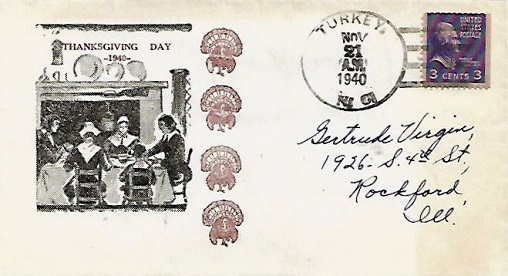 THANKSGIVING DAY
-1940-
TURKEY,
NOV
21
A.M.
1940
N. C.
UNITED STATES
POSTAGE
3 CENTS 3
Gertrude Virgin,
1926- S. 4th St,
Rockford,
Ill.